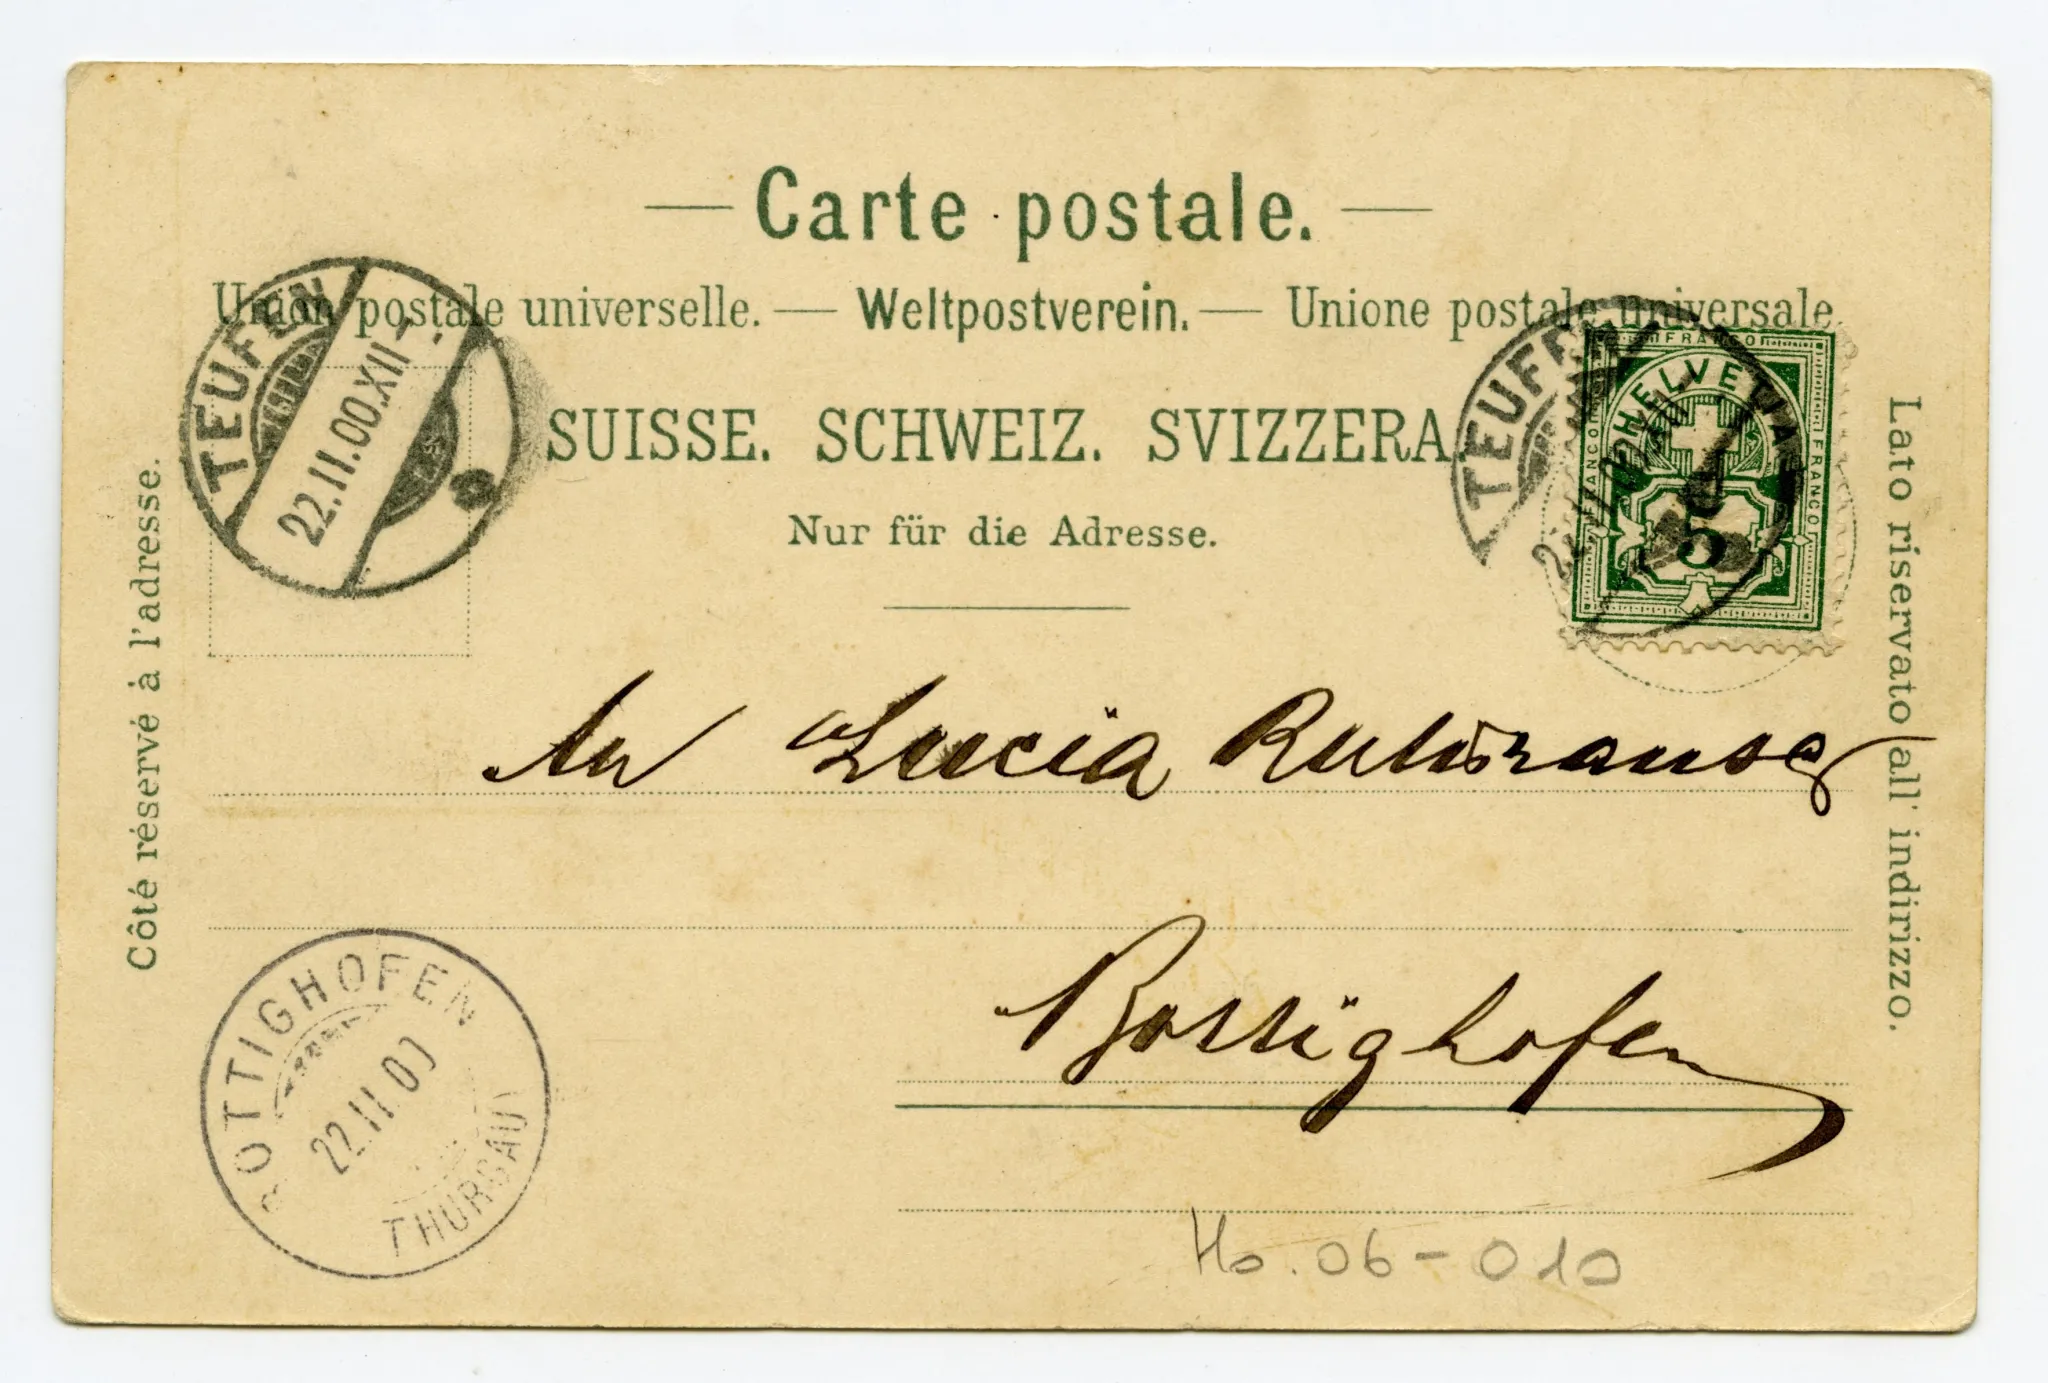 Carte postale.
Union postale universelle. — Weltpostverein. — Unione postale universale
SUISSE. SCHWEIZ. SVIZZERA.
Nur für die Adresse.
Côté réservé à l'adresse.
Lato riservato all' indirizzo.
TEUFEN
22.II.00.XII-
TEUFEN
FRANCO
HELVETIA
FRANCO
FRANCO
5
An Lucia
Bottighofen
BOTTIGHOFEN
22.II.00
THURGAU
Ho. 06-010